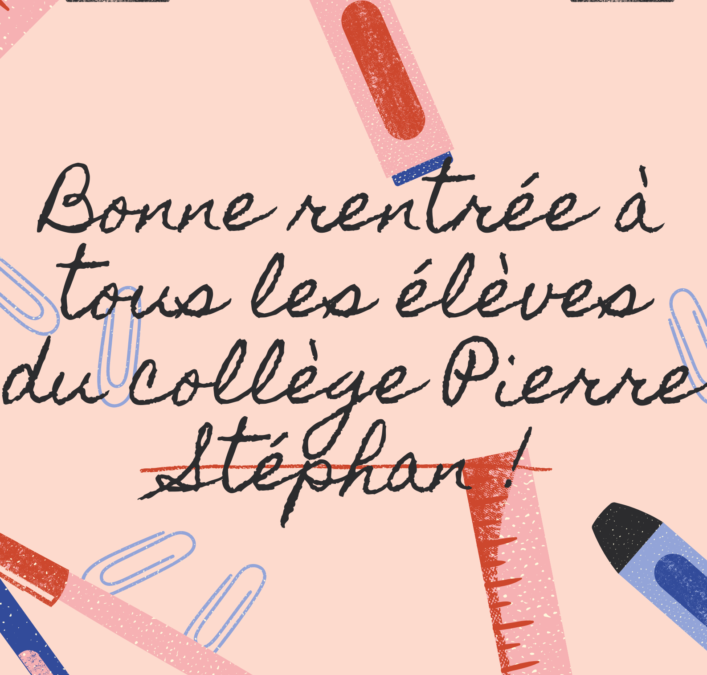 Bonne rentrée à
tous les élèves
du collège Pierre
Stéphan !